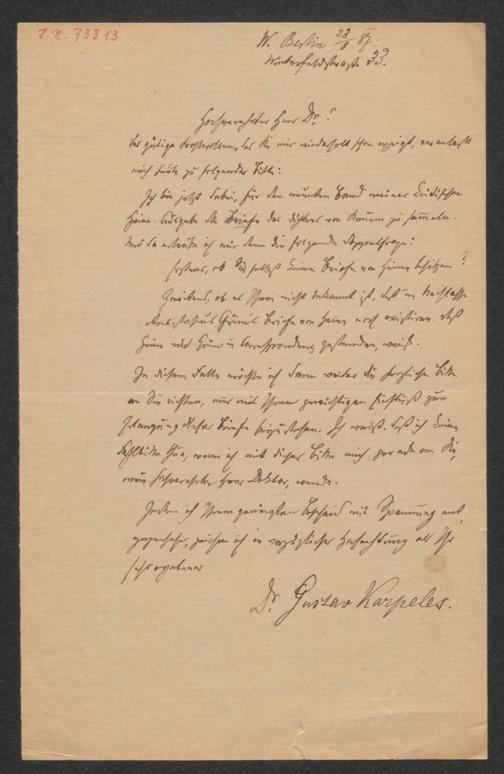 J. N. 73313
W. Berlin 23/8 87.
Winterfeldstraße 33.
Hochverehrter Herr Dr.!
Das gütige Vorwollen, das Sie mir wiederholt schon gezeigt, veranlaßt
mich heute zu folgender Bitte:
Ich bin jetzt dabei, für den neunten Band meiner kritischen
Heine-Ausgabe die Briefe des Dichters von Neuem zu sammeln.
Und da erlaube ich mir denn die folgende Doppelfrage:
Erstens, ob Sie selbst keine Briefe von Heine besitzen?
Zweitens, ob es Ihnen nicht bekannt ist, daß im Nachlasse
Anastasius Grün's Briefe von Heine noch existiren. Daß
Heine mit Grün in Correspondenz gestanden, weiß ich.
In diesem Falle möchte ich dann weiter die herzliche Bitte
an Sie richten, mir mit Ihrem gewichtigen Einfluß zur
Erlangung dieser Briefe beizustehen. Ich weiß, daß ich keine
Fehlbitte thue, wenn ich mit dieser Bitte mich gerade an Sie,
mein hochverehrter Herr Doktor, wende.
Indem ich Ihrem geneigten Bescheid mit Spannung ent-
gegensehe, zeichne ich in vorzüglicher Hochachtung als Ihr
sehr ergebener
Dr. Gustav Karpeles.